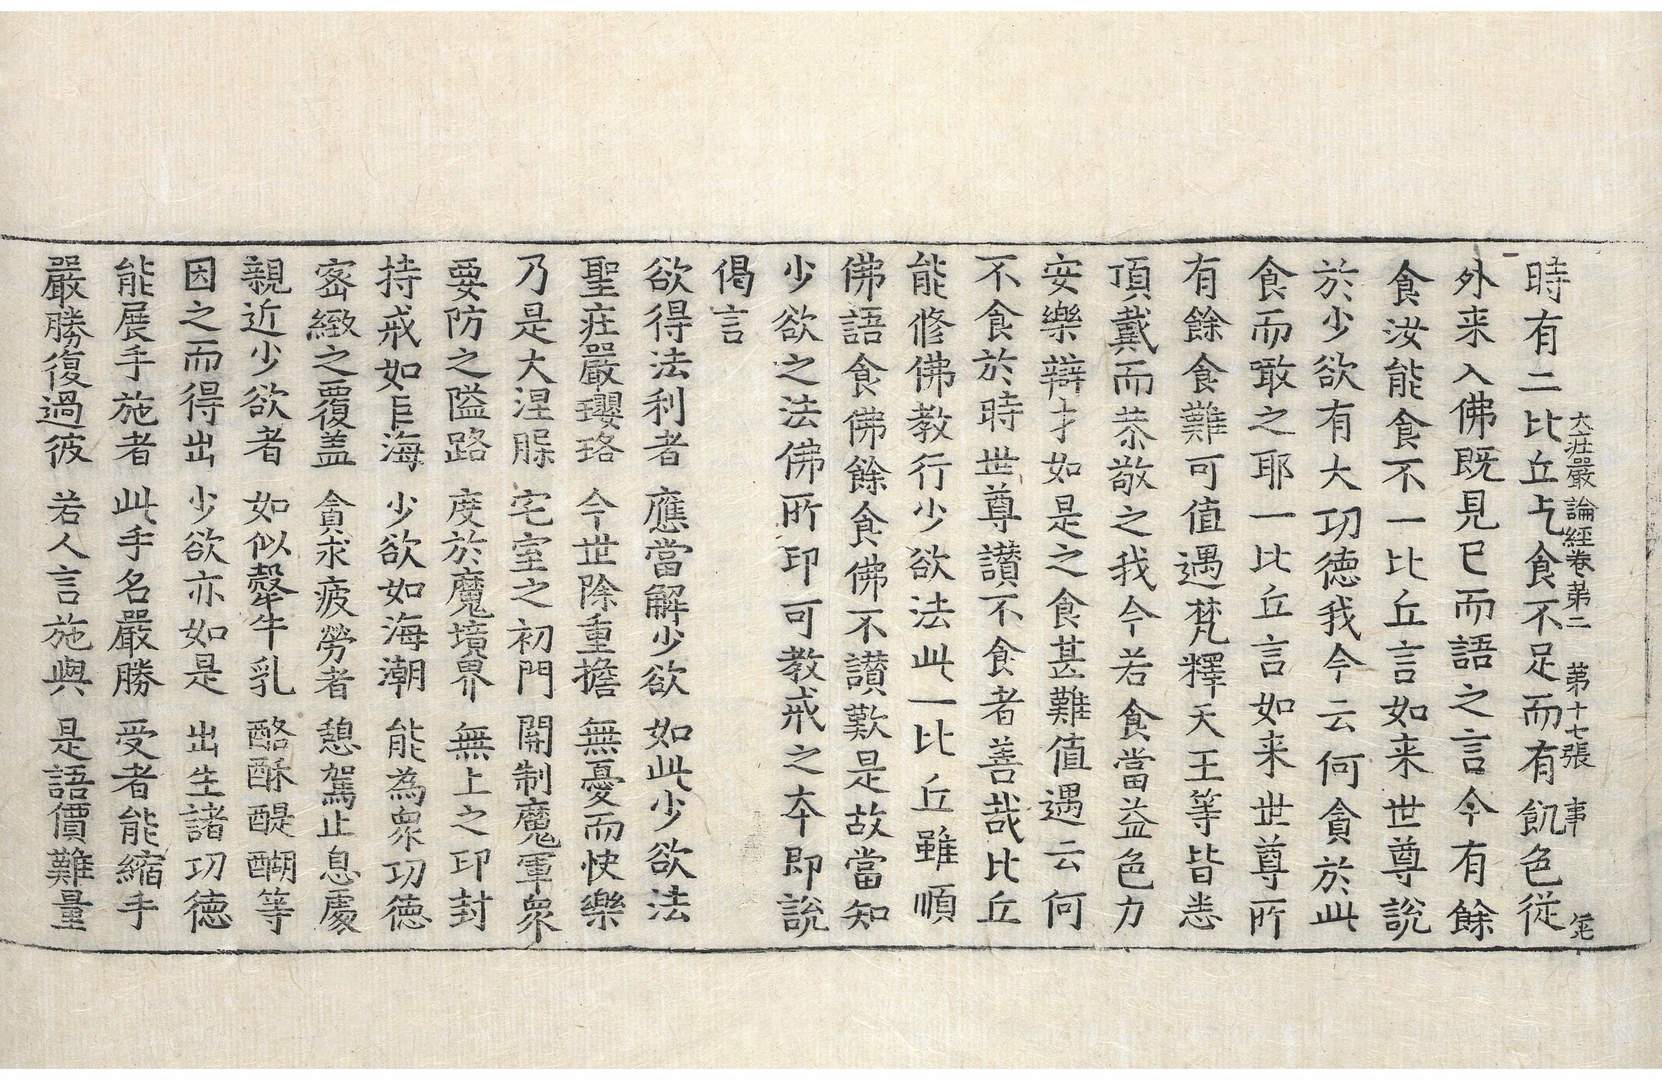 大庄嚴論經卷第二 第十七張 事
時有二比丘乞食不足而有飢色從
外来入佛既見已而語之言今有餘
食汝能食不一比丘言如来世尊說
於少欲有大功德我今云何貪於此
食而噉之耶一比丘言如来世尊所
有餘食難可值遇梵釋天王等皆悉
頂戴而恭敬之我今若食當益色力
安樂辯才如是之食甚難值遇云何
不食於時世尊讃不食者善哉比丘
能修佛教行少欲法此一比丘雖順
佛語食佛餘食佛不讃歎是故當知
少欲之法佛所印可教戒之本即說
偈言
欲得法利者 應當解少欲 如此少欲法
聖庄嚴瓔珞 今世除重擔 無憂而快樂
乃是大涅槃 宅室之初門 關制魔軍衆
要防之隘路 度於魔境界 無上之印封
持戒如巨海 少欲如海潮 能為衆功德
密緻之覆盖 貪求疲勞者 憩駕止息處
親近少欲者 如似𤛓牛乳 酪酥醍醐等
因之而得出 少欲亦如是 出生諸功德
能展手施者 此手名嚴勝 受者能縮手
嚴勝復過彼 若人言施與 是語價難量